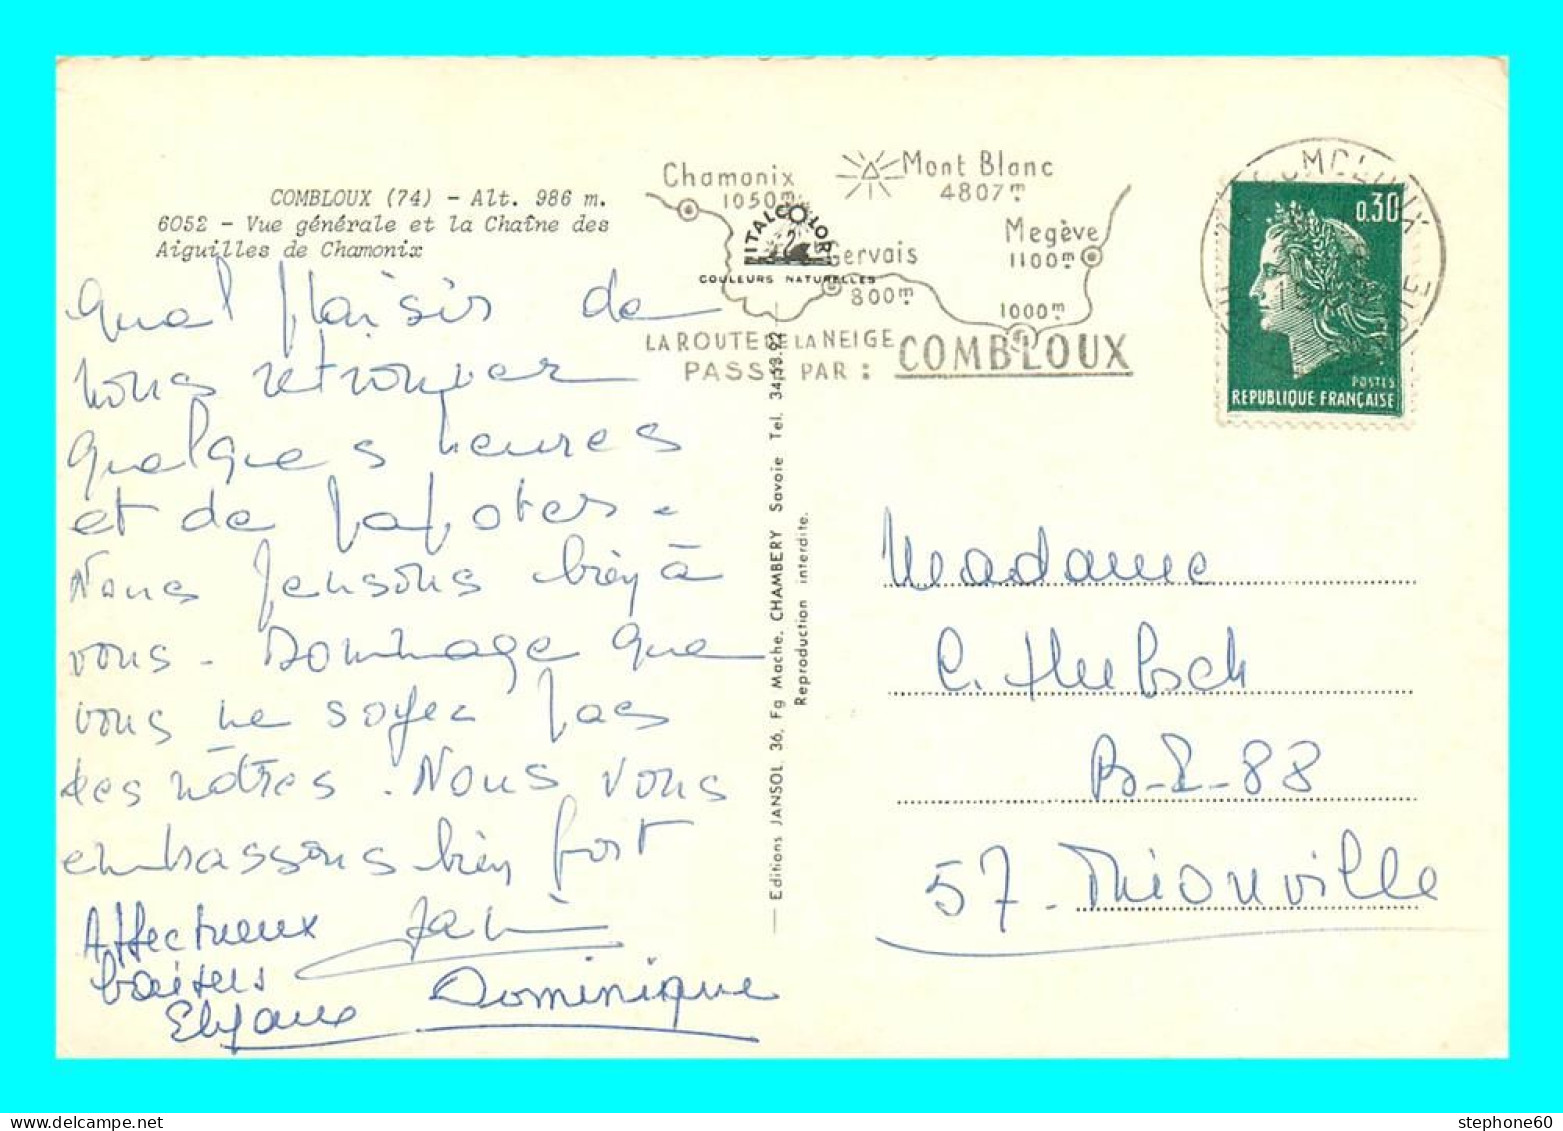 COMBLOUX (74) - Alt. 986 m.
6052 - Vue générale et la Chaîne des
Aiguilles de Chamonix
Quel plaisir de
nous retrouver
quelques heures
et de papoter.
Nous pensons bien à
vous. Dommage que
vous ne soyez pas
des nôtres. Nous vous
embrassons bien fort
Affectueux
baisers
Dominique
Chamonix
1050m
Mont Blanc
4807m
Megève
1100m
Gervais
800m
1000m
LA ROUTE DE LA NEIGE
PASSE PAR : COMBLOUX
ITALCOLOR
COULEURS NATURELLES
Editions JANSOL, 36, Fg Mache, CHAMBERY Savoie Tel. 34.13.92
Reproduction interdite.
0,30
POSTES
REPUBLIQUE FRANÇAISE
Madame
C. Huebsch
B.P. 88
57. Thionville
stephone60